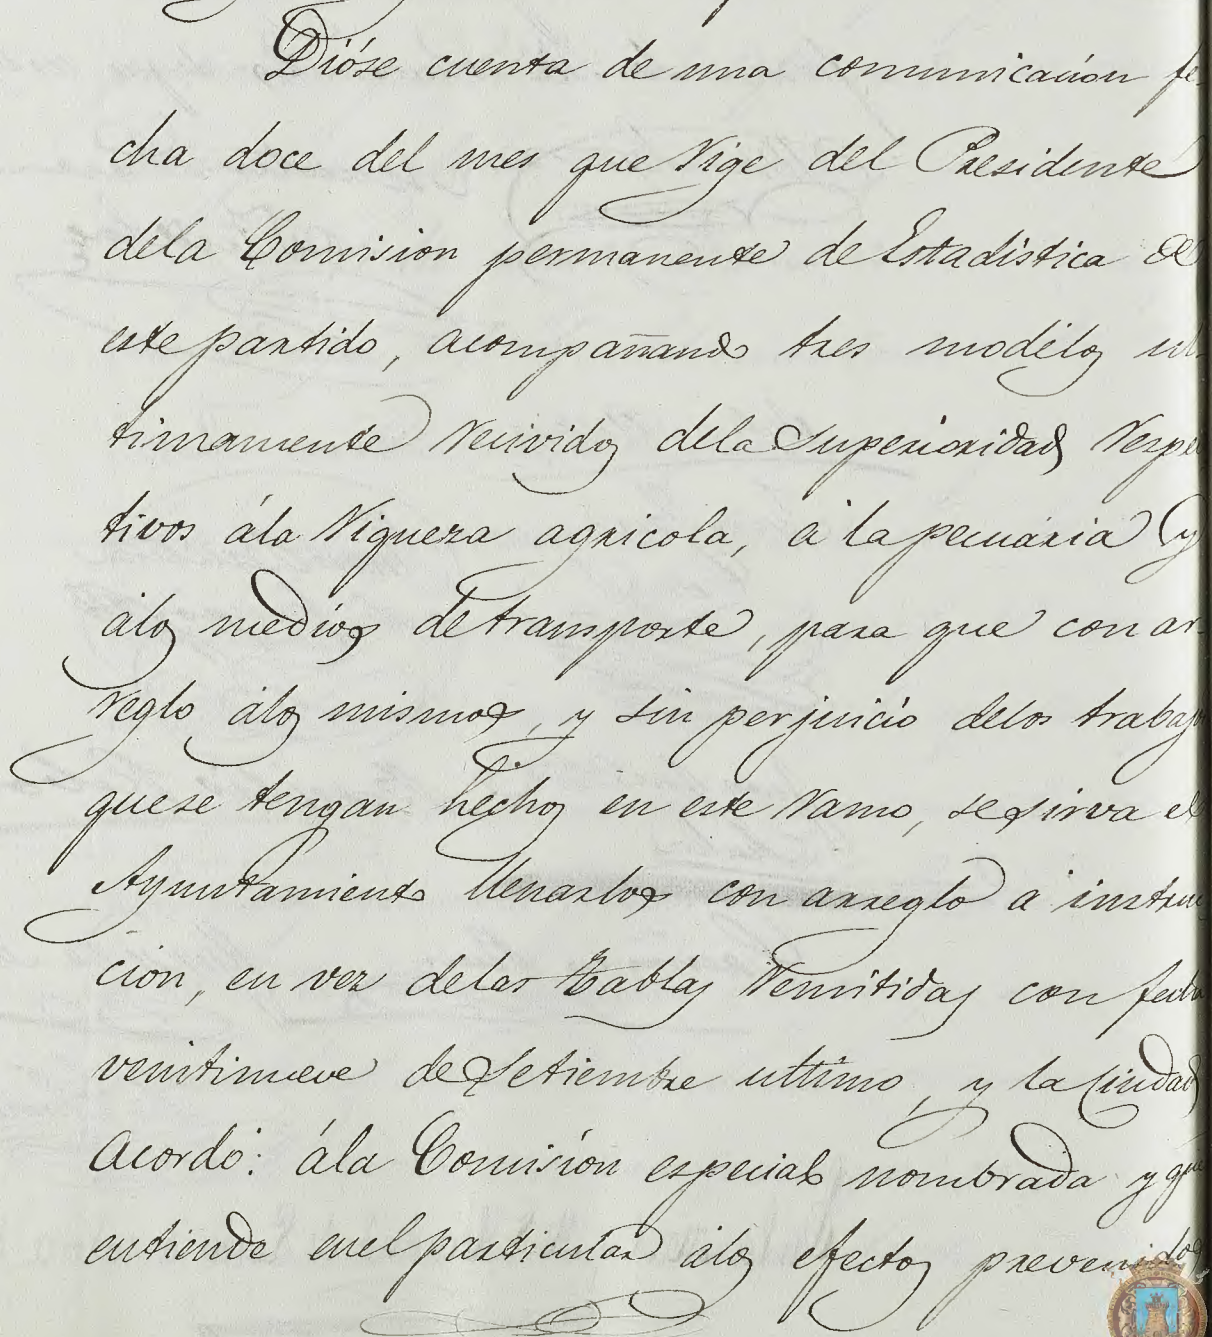 Dióse cuenta de una comunicación fe-
cha doce del mes que rige del Presidente
dela Comision permanente de Estadística de
este partido, acompañando tres modélos ul-
timamente recividos dela Superioridad respec
tivos ála riqueza agricola, á la pecuária y
álos medios de transporte, para que con ar-
reglo álos mismos, y sin perjuicio delos trabajos
que se tengan hechos en este ramo, se sirva el
Ayuntamiento llenarlos con arreglo á instruc
ción, en vez delas Tablas remitidas con fecha
veintinueve de Setiembre ultimo, y la Ciudad
Acordó: ála Comisión especial nombrada y que
entiende enel particular álos efectos prevenidos